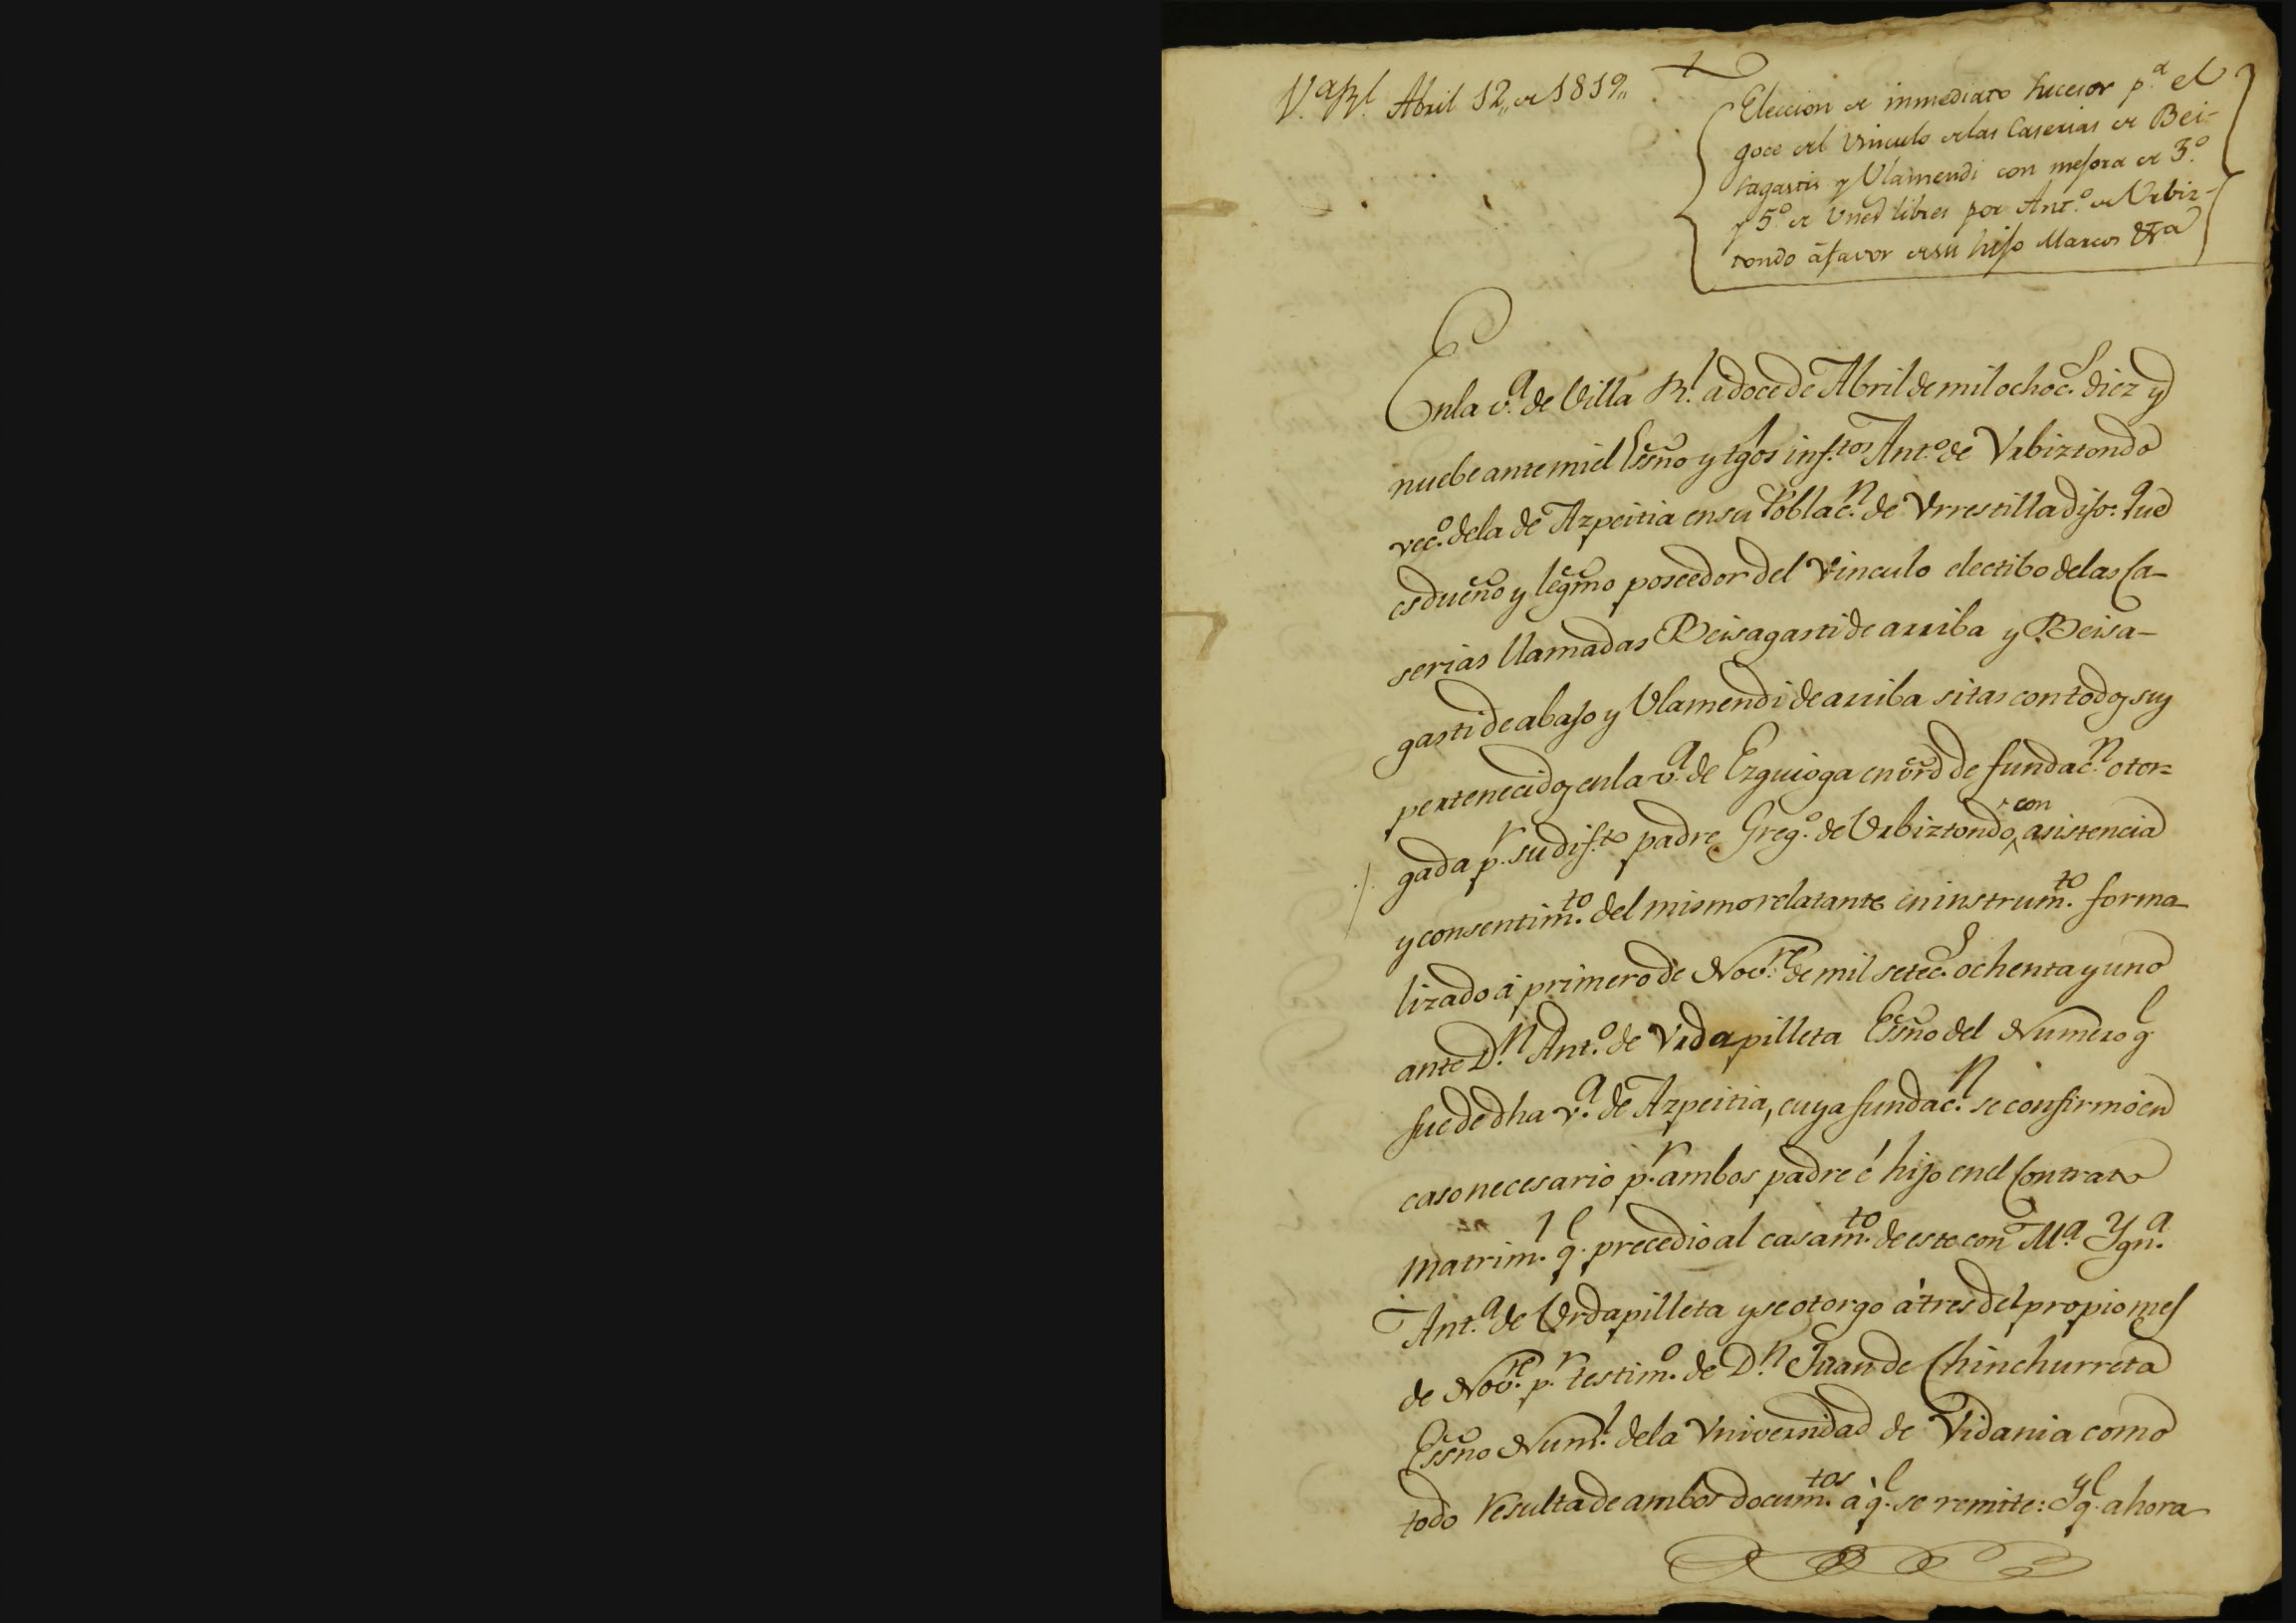 V.ª Rl. Abril 12,, de 1819,,
Eleccion de inmediato sucesor p.ª el
goce del Vinculo de las Caserias de Bei-
sagastis y Ulamendi con mejora de 3.º
y 5.º de Vnes libres por Ant.º de Urbiz-
tondo á favor de su hijo Marcos &.ª
En la v.ª de Villa R.l a doce de Abril de mil ochoc.s diez y
nuebe ante mi el Essno y tgos inf.tos Ant.º de Vrbiztondo
vec.º de la de Azpeitia en su Poblac.n de Vrrestilla dijo: Que
es dueño y legmo poseedor del Vinculo electibo de las Ca-
serias llamadas Beisagasti de arriba y Beisa-
gasti de abajo y Ulamendi de arriba sitas con todos sus
pertenecidos en la v.ª de Ezquioga en vrd de fundac.n otor=
gada p.r su dif.to padre Greg.º de Urbiztondo, con asistencia
y consentim.to del mismo relatante en instrum.to forma-
lizado á primero de Nov.re de mil setec.s ochenta y uno
ante D.n Ant.º de Vrdapilleta Essno del Numero q.e
fue de dha v.ª de Azpeitia, cuya fundac.n se confirmó en
caso necesario p.r ambos padre é hijo en el Contrato
Matrim.l q.e precedio al casam.to de este con M.ª Ygn.ª
Ant.ª de Urdapilleta y se otorgo á tres del propio mes
de Nov.re p.r testim.º de D.n Juan de Chinchurreta
Essno Num.l de la Vniversidad de Vidania como
todo resulta de ambos docum.tos á q.e se remite: Y q.e ahora